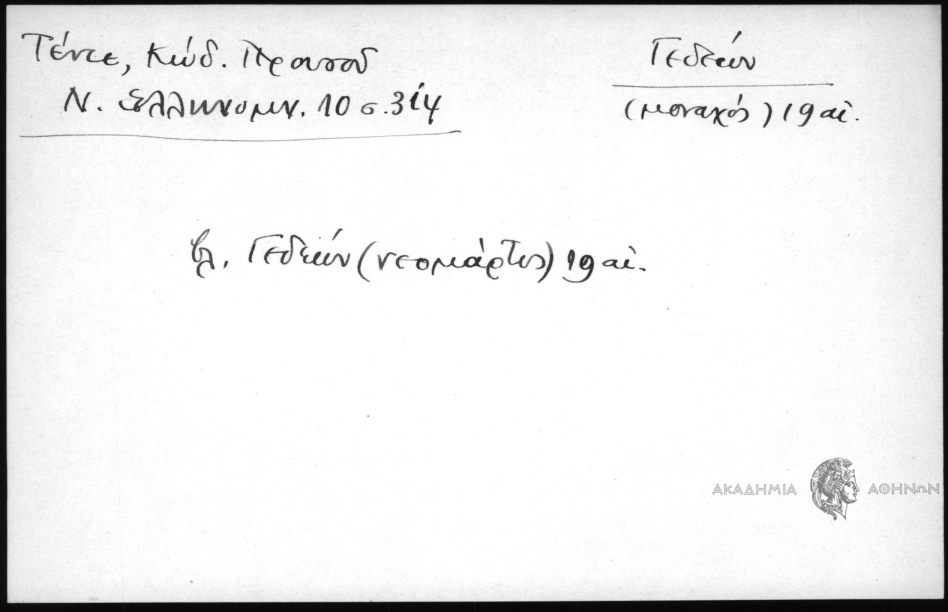 Γεδεών
(μοναχός) 19 αἰ.
Κώδ.
Ν. Ἑλληνομν. 10 σ. 314
βλ. Γεδεών (νεομάρτυς) 19 αἰ.
ΑΚΑΔΗΜΙΑ ΑΘΗΝΩΝ